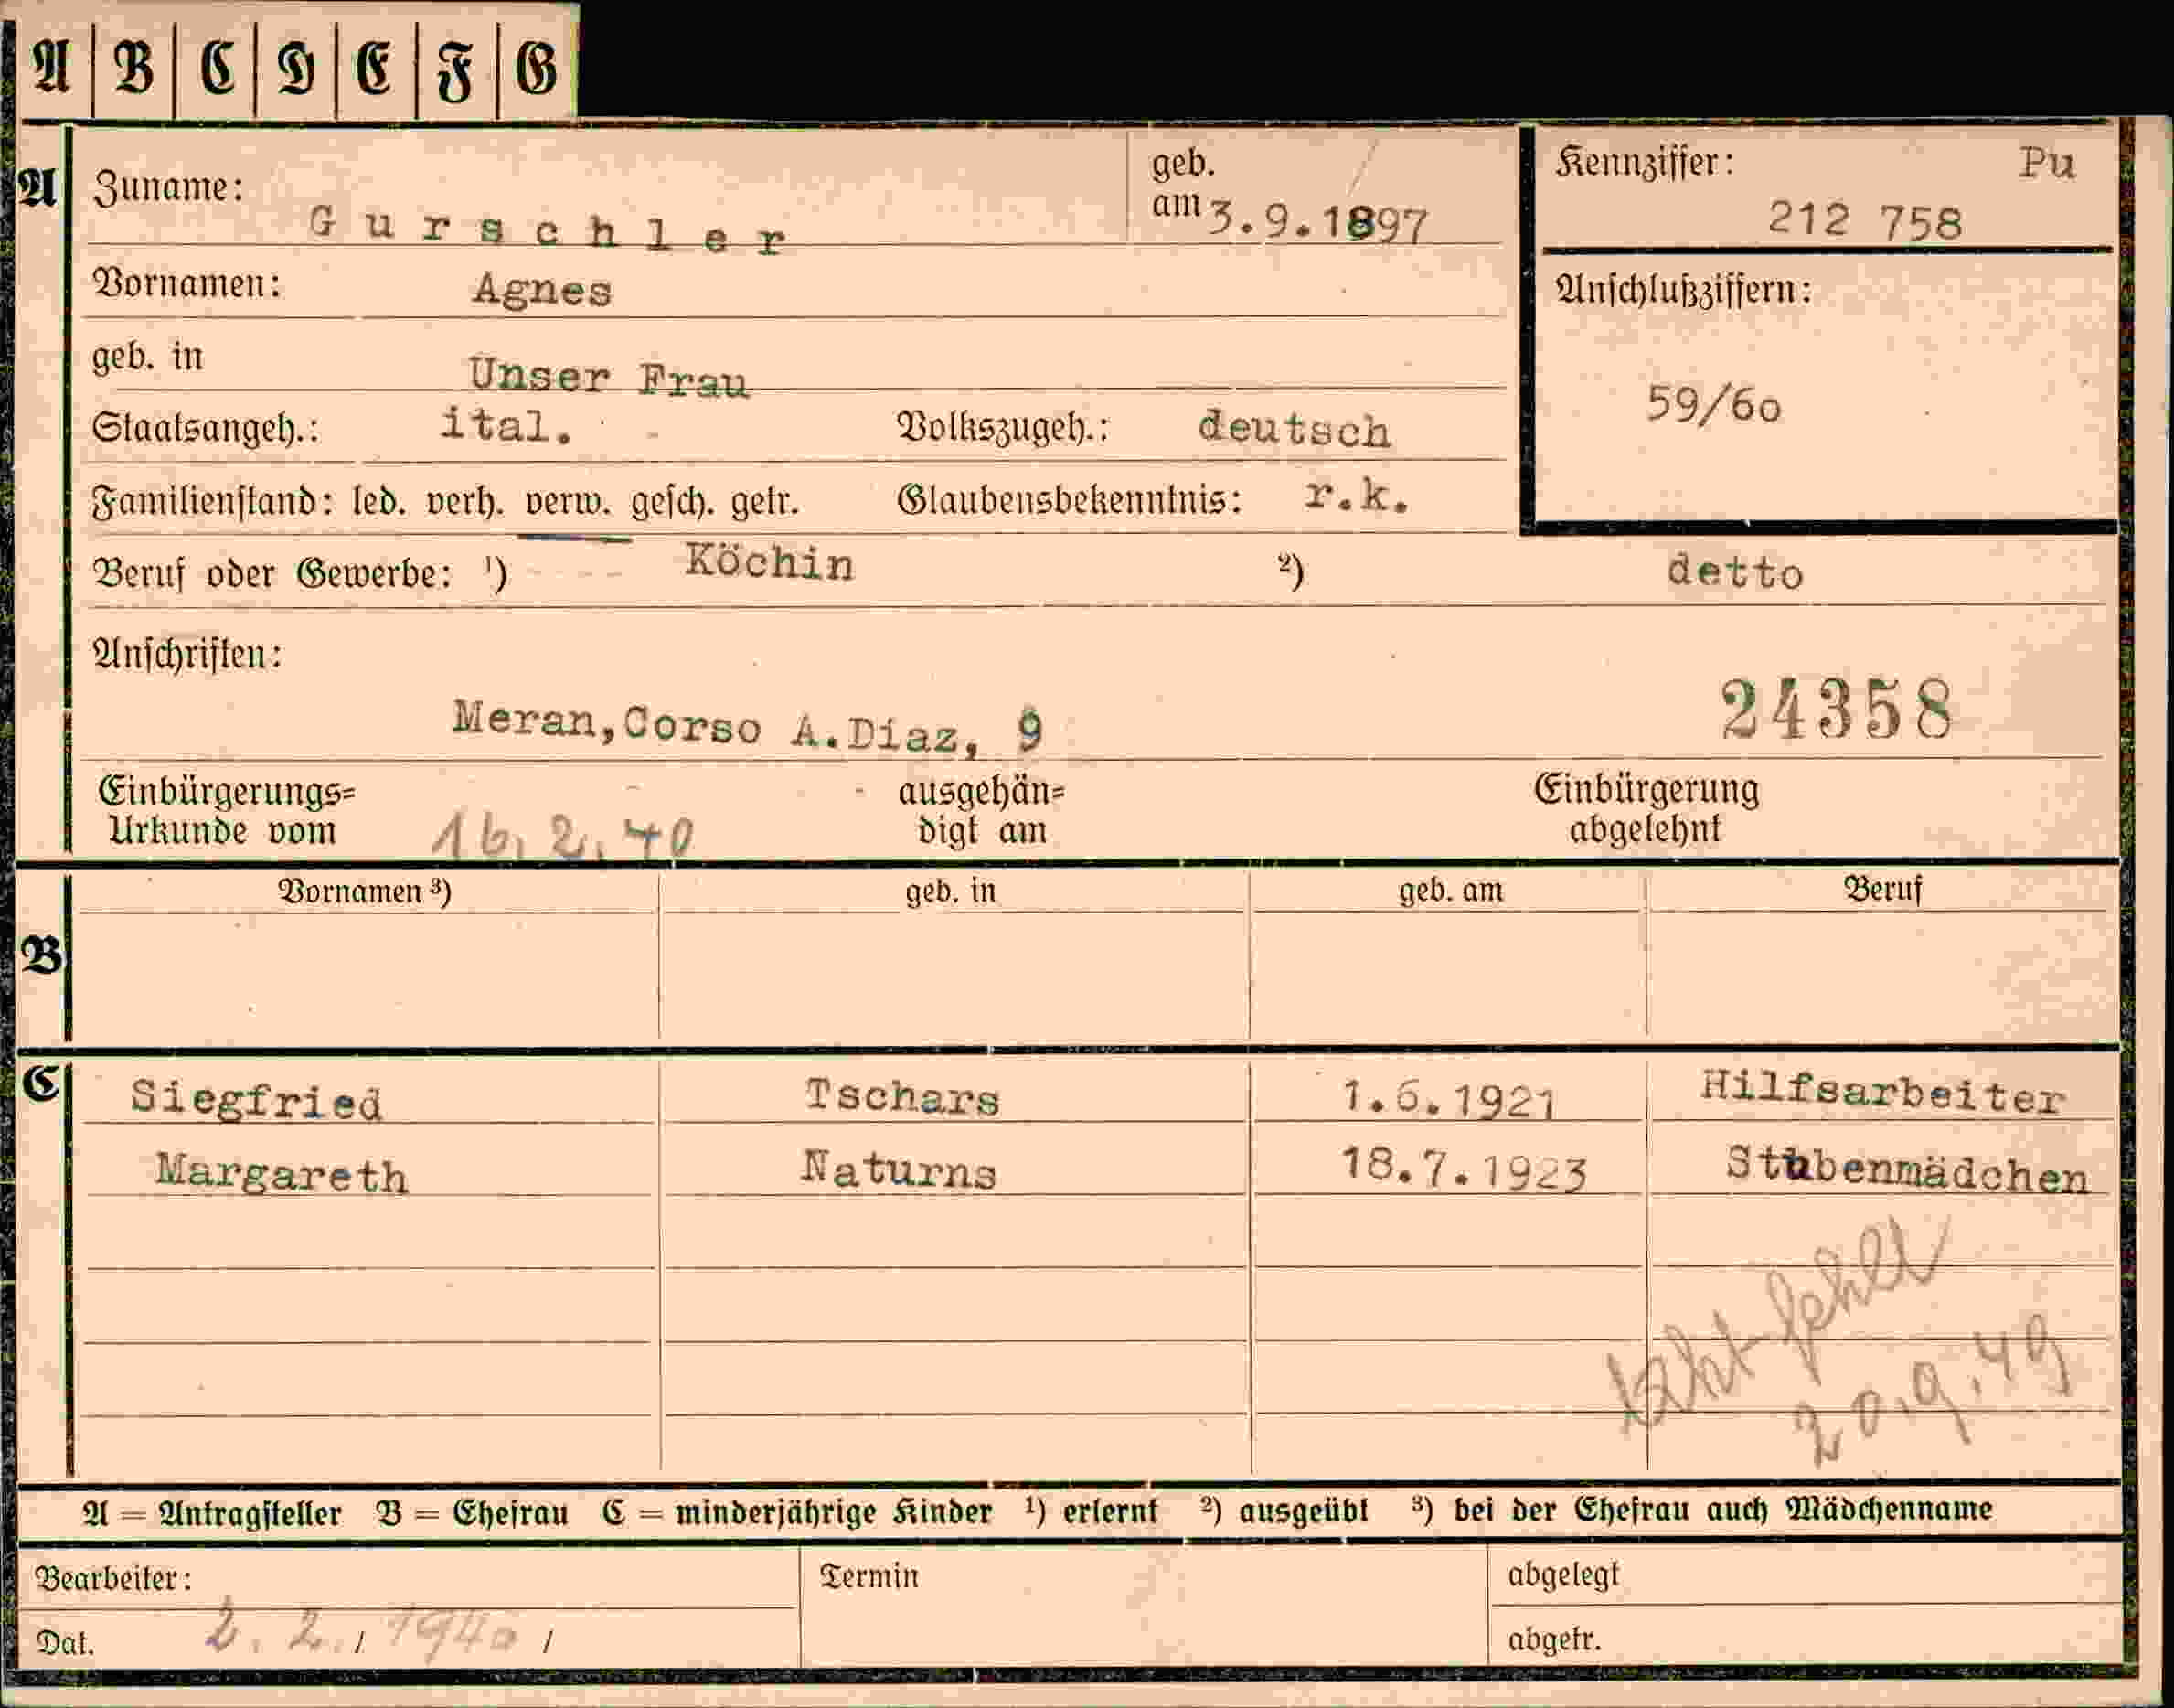 A B C D E F G
A Zuname: Gurschler geb. am 3.9.1897 Kennziffer: Pu
212 758
Vornamen: Agnes Anschlußziffern:
geb. in Unser Frau 59/60
Staatsangeh.: ital. Volkszugeh.: deutsch
Familienstand: led. verh. verw. gesch. getr. Glaubensbekenntnis: r.k.
Beruf oder Gewerbe: ¹) Köchin ²) detto
Anschriften:
Meran,Corso A.Diaz, 9 24358
Einbürgerungs= ausgehän= Einbürgerung
Urkunde vom 16.2.40 digt am abgelehnt
Vornamen ³) geb. in geb. am Beruf
B
C Siegfried Tschars 1.6.1921 Hilfsarbeiter
Margareth Naturns 18.7.1923 Stubenmädchen
fehlt
20.9.49
A = Antragsteller B = Ehefrau C = minderjährige Kinder ¹) erlernt ²) ausgeübt ³) bei der Ehefrau auch Mädchenname
Bearbeiter: Termin abgelegt
Dat. 2.2./1940/ abgetr.